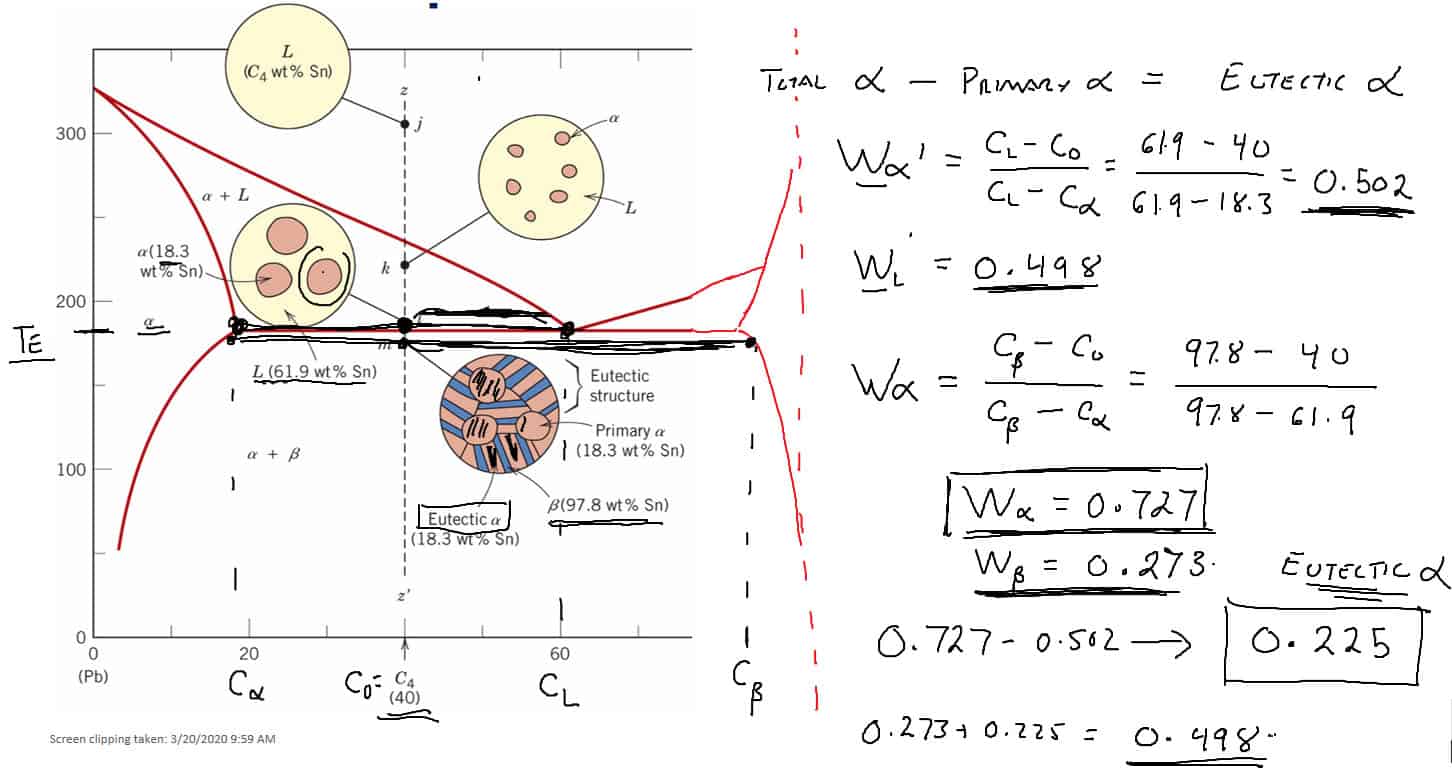 L
(C4 wt% Sn)
z
j
300
α
α + L
L
α(18.3
wt% Sn)
k
200
α
TE
m
L (61.9 wt% Sn)
Eutectic
structure
Primary α
(18.3 wt% Sn)
α + β
100
β(97.8 wt% Sn)
Eutectic α
(18.3 wt% Sn)
z'
0
0
20
60
(Pb)
C4
(40)
Cα
C0=
CL
Cβ
Screen clipping taken: 3/20/2020 9:59 AM
TOTAL α - PRIMARY α = EUTECTIC α
Wα' = CL - C0 / CL - Cα = 61.9 - 40 / 61.9 - 18.3 = 0.502
WL' = 0.498
Wα = Cβ - C0 / Cβ - Cα = 97.8 - 40 / 97.8 - 61.9
Wα = 0.727
Wβ = 0.273
EUTECTIC α
0.727 - 0.502 → 0.225
0.273 + 0.225 = 0.498